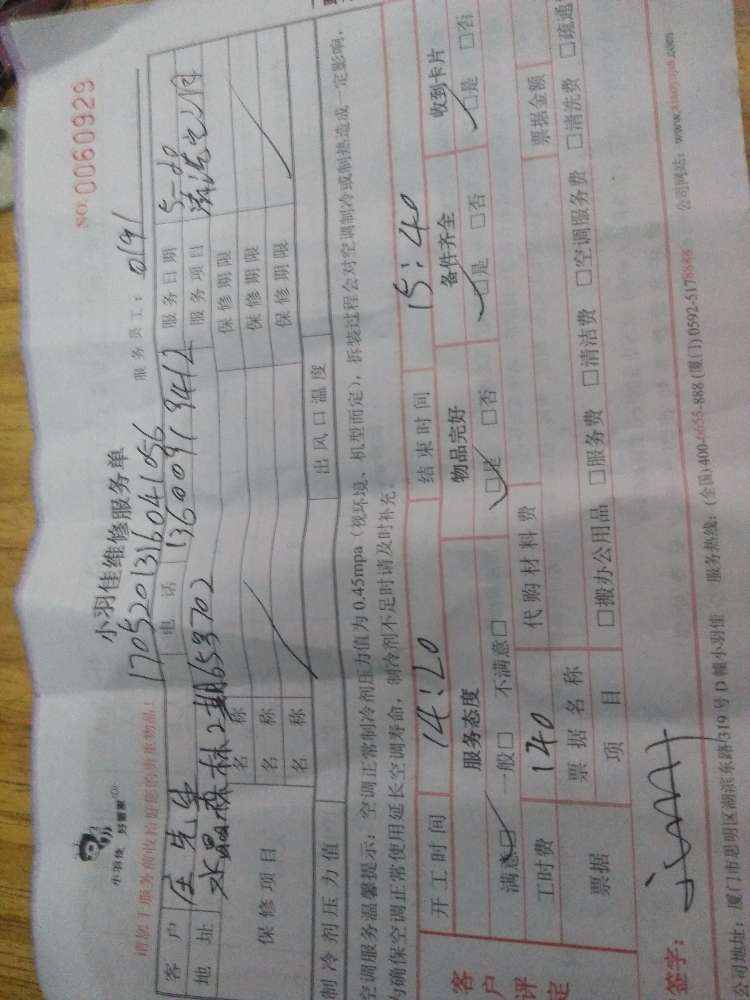 小羽佳 好管家
小羽佳维修服务单
NO.0060929
请您于服务前收拾好您的贵重物品!
1705201316041056
服务员工: 0191
客户 庄先生 电话 13600919412 服务日期 5-20
地址 水晶森林2期653702 服务项目 清洗
保修项目 名称 保修期限
名称 保修期限
名称 保修期限
制冷剂压力值 出风口温度
空调服务温馨提示: 空调正常制冷剂压力值为 0.45mpa (视环境、机型而定), 拆装过程会对空调制冷或制热造成一定影响,
为确保空调正常使用延长空调寿命, 制冷剂不足时请及时补充。
客户评定
开工时间 14:20 结束时间 15:40
服务态度 物品完好 备件齐全 收到卡片
满意□ 一般□ 不满意□ □是 □否 □是 □否 □是 □否
工时费 140 代购材料费
票据 票据名称 票据金额
项目 □搬办公用品 □服务费 □清洁费 □空调服务费 □清洗费 □疏通
签字:
公司地址: 厦门市思明区湖滨东路319号D幢小羽佳 服务热线: (全国)400-6655-888 (厦门)0592-5178888 公司网站: www.xiaoyujia.com